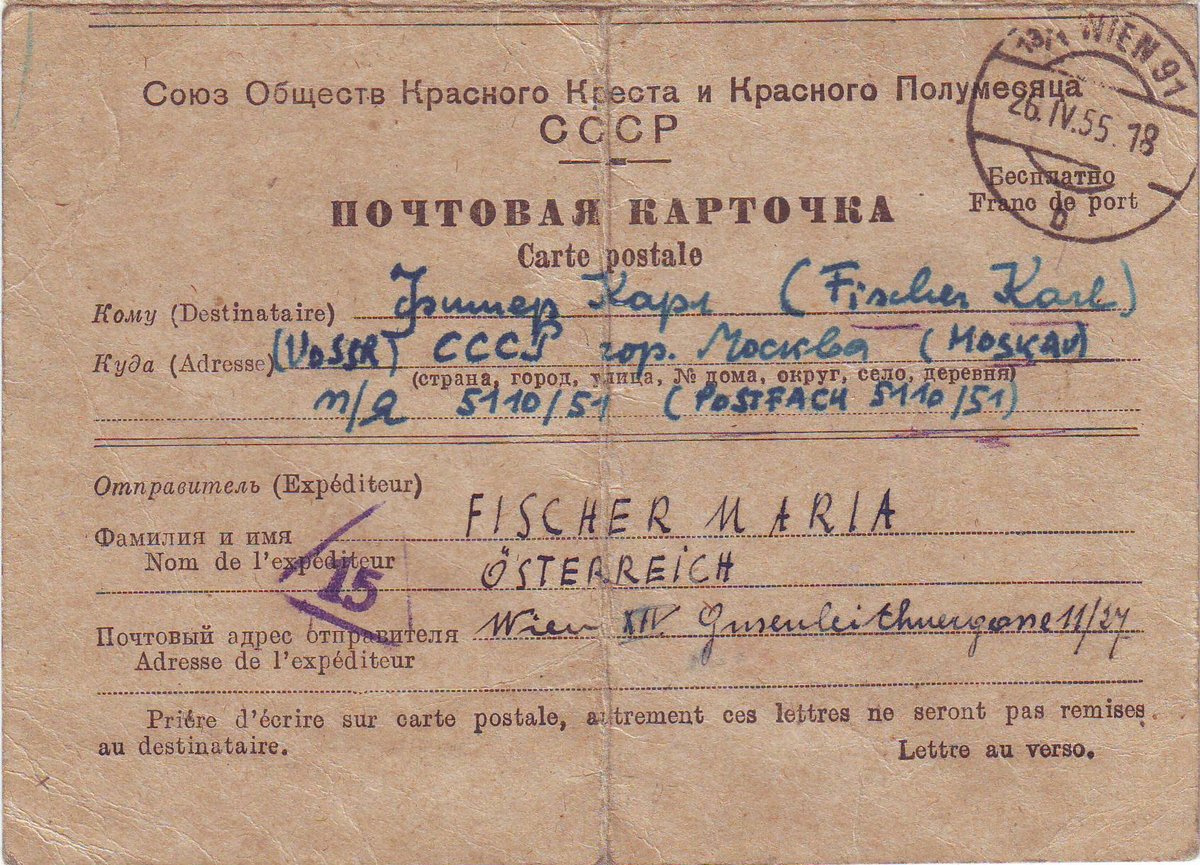 Союз Обществ Красного Креста и Красного Полумесяца
СССР
13/1 WIEN 91
26.IV.55.18
b
Бесплатно
Franc de port
ПОЧТОВАЯ КАРТОЧКА
Carte postale
Кому (Destinataire) Фишер Карл (Fischer Karl)
Куда (Adresse) (UdSSR) СССР гор. Москва (MOSKAU)
(страна, город, улица, № дома, округ, село, деревня)
п/я 5110/51 (POSTFACH 5110/51)
Отправитель (Expéditeur)
Фамилия и имя FISCHER MARIA
Nom de l'expéditeur ÖSTERREICH
15
Почтовый адрес отправителя Wien XIV Gusenleithnergasse 11/27
Adresse de l'expéditeur
Priére d'écrire sur carte postale, autrement ces lettres ne seront pas remises
au destinataire. Lettre au verso.